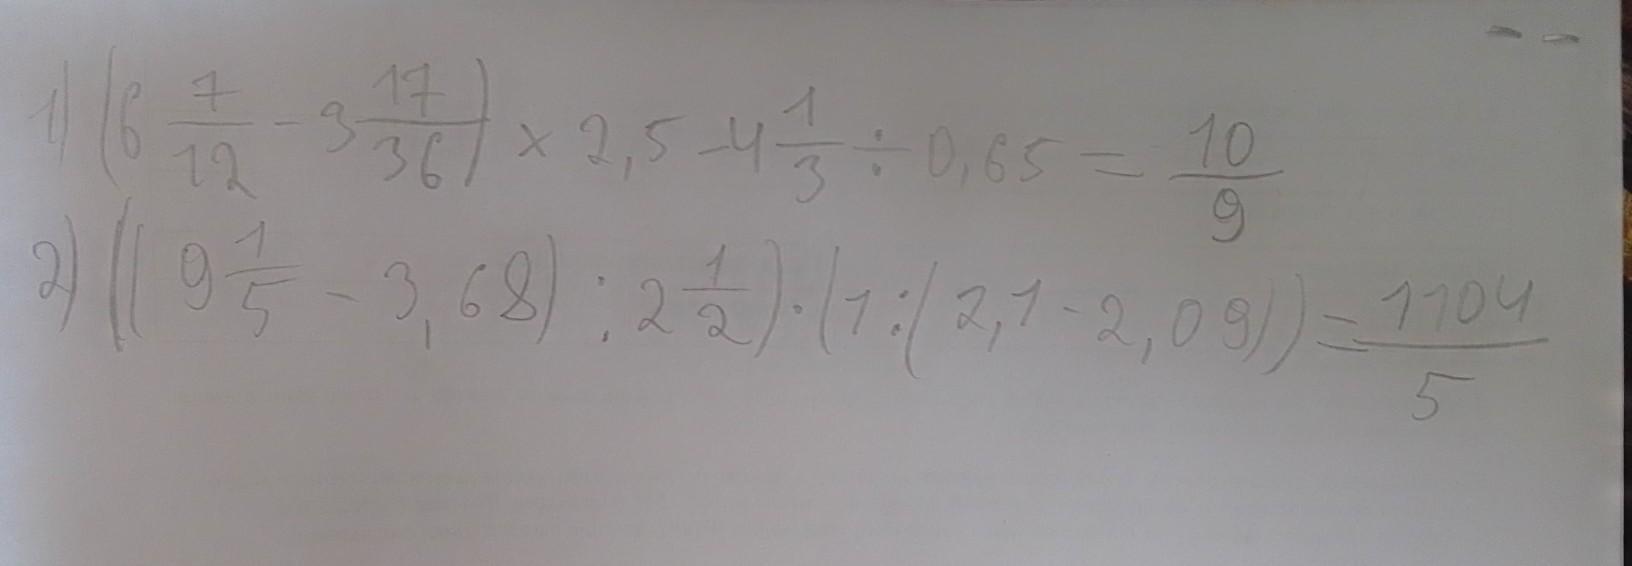 1) (6 7/12 - 3 17/36) × 2,5 - 4 1/3 ÷ 0,65 = 10/9
2) ((9 1/5 - 3,68) : 2 1/2) · (1 : (2,1 - 2,09)) = 1104/5